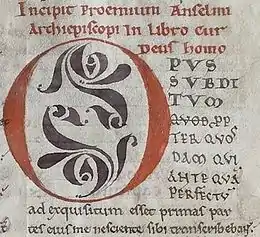 Incipit Proemium Anselmi
Archiepiscopi In Libro cur
Deus homo
OPUS
SUBDI
TUM
QUOD PP
TER QUOS
DAM QUI
ANTE QUA
PERFECTU
ad exquisitum esset primas par
tes eius me nesciente sibi transcribebant.